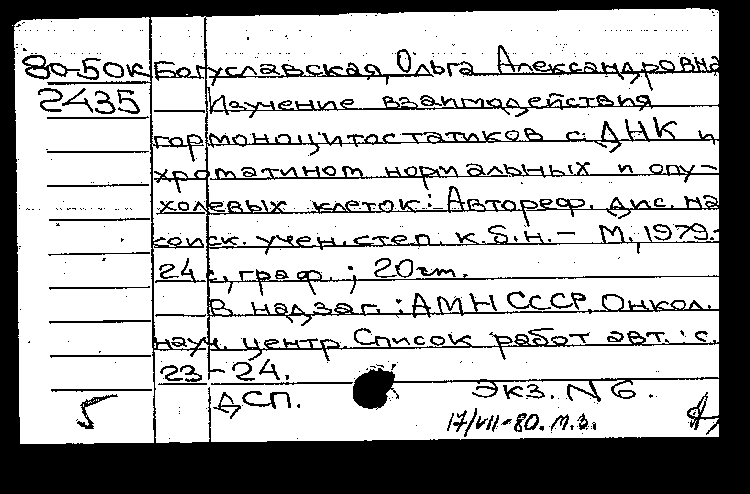 80-50к Богуславская, Ольга Александровна
2435 Изучение взаимодействия
гормоноцитостатиков с ДНК и
хроматином нормальных и опу-
холевых клеток: Автореф. дис. на
соиск. учен. степ. к.б.н. - М., 1979.-
24 с., граф.; 20 см.
В надзаг.: АМН СССР. Онкол.
науч. центр. Список работ авт.: с.
23-24.
ДСП. Экз. N 6.
17/VII-80. М.З.